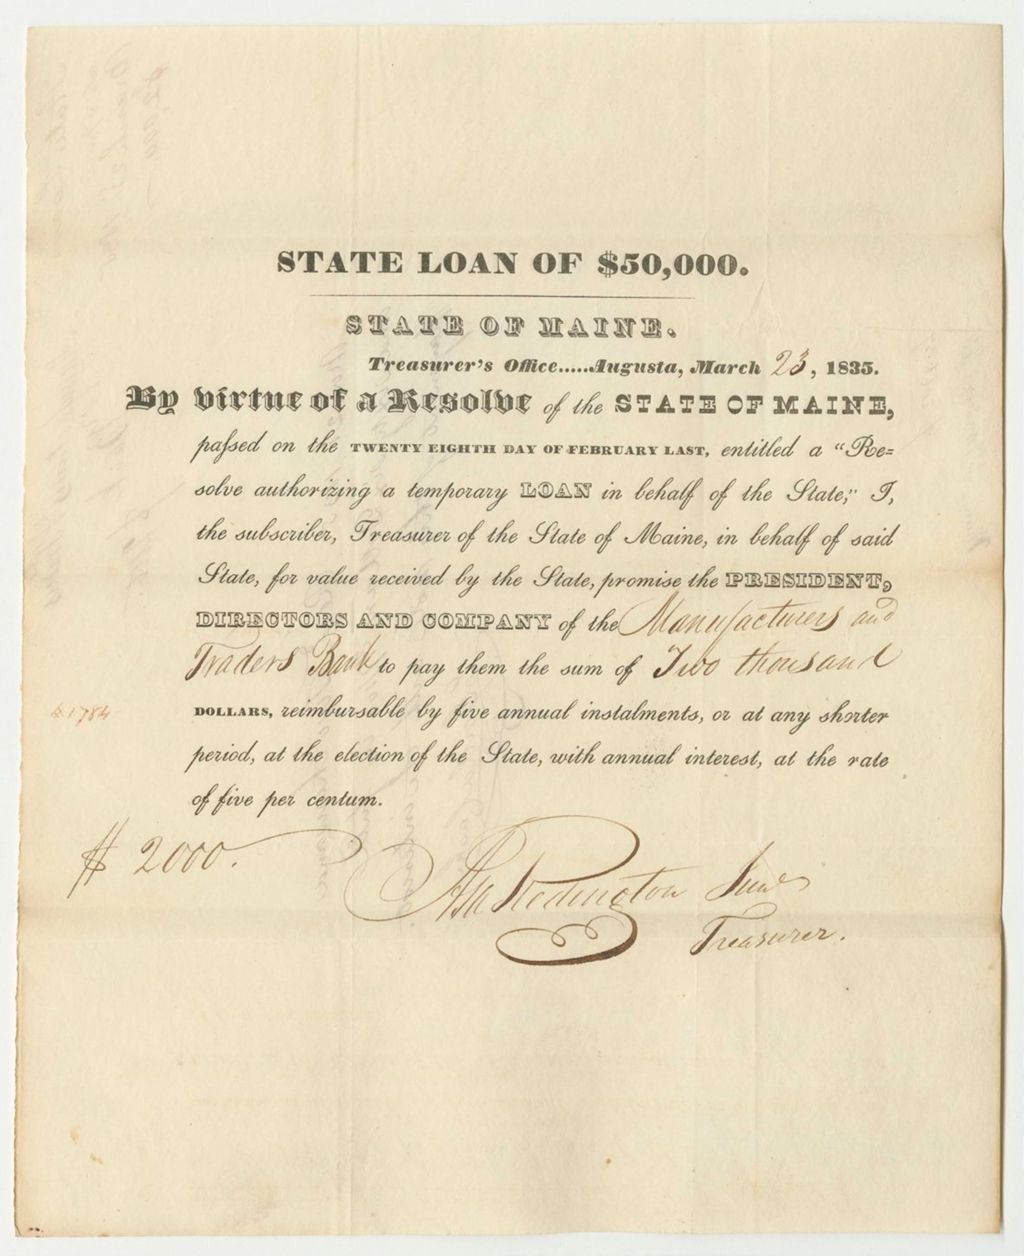 STATE LOAN OF $50,000.
STATE OF MAINE.
Treasurer's Office.....Augusta, March 23, 1835.
By virtue of a Resolve of the STATE OF MAINE,
passed on the TWENTY EIGHTH DAY OF FEBRUARY LAST, entitled a "Re=
solve authorizing a temporary LOAN in behalf of the State," I,
the subscriber, Treasurer of the State of Maine, in behalf of said
State, for value received by the State, promise the PRESIDENT,
DIRECTORS AND COMPANY of the Manufacturers and
Traders Bank to pay them the sum of Two thousand
DOLLARS, reimbursable by five annual instalments, or at any shorter
period, at the election of the State, with annual interest, at the rate
of five per centum.
1784
$ 2000.
Asa Redington Junr
Treasurer.